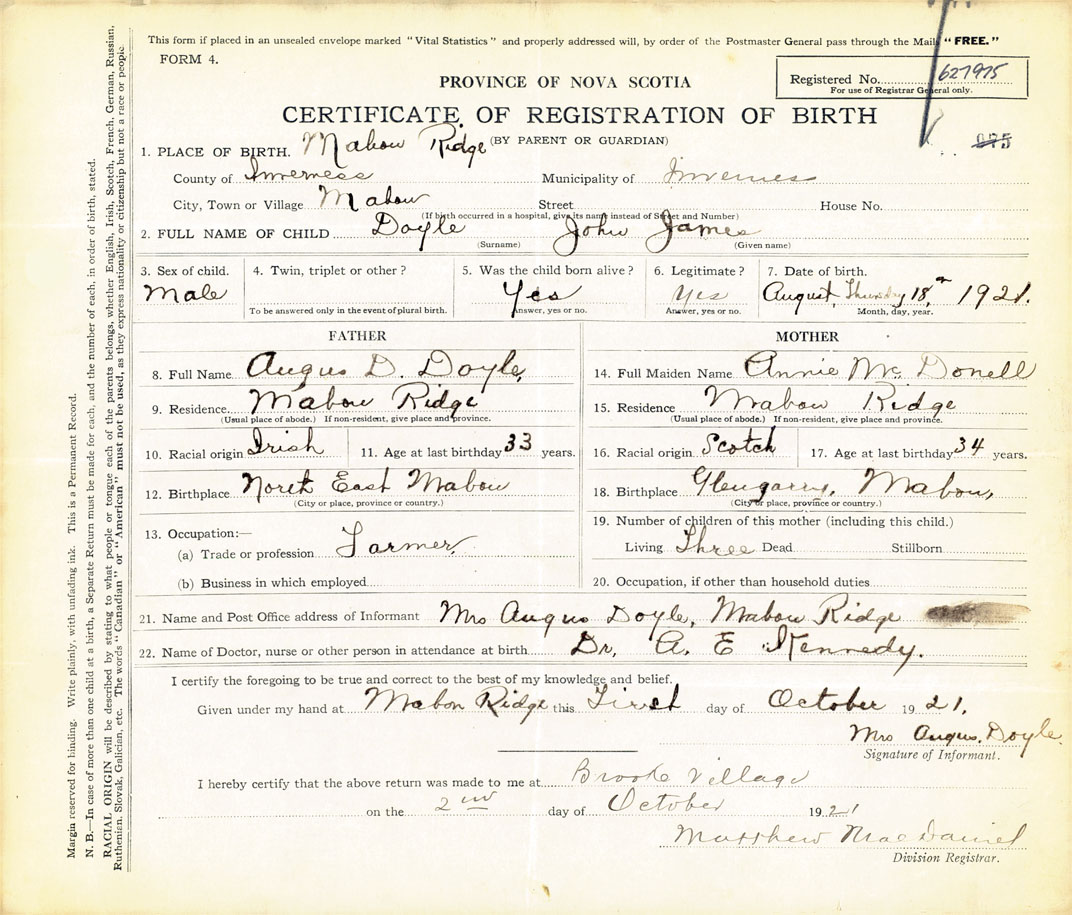 This form if placed in an unsealed envelope marked "Vital Statistics" and properly addressed will, by order of the Postmaster General pass through the Mail "FREE."
FORM 4.
Registered No. 627975
For use of Registrar General only.
PROVINCE OF NOVA SCOTIA
CERTIFICATE OF REGISTRATION OF BIRTH
975
(BY PARENT OR GUARDIAN)
1. PLACE OF BIRTH. Mabou Ridge
County of Inverness Municipality of Inverness
City, Town or Village Mabou Street House No.
(If birth occurred in a hospital, give its name instead of Street and Number)
2. FULL NAME OF CHILD Doyle John James
(Surname) (Given name)
3. Sex of child. 4. Twin, triplet or other? 5. Was the child born alive? 6. Legitimate? 7. Date of birth.
Male Yes Yes August, Thursday 18, 1921.
To be answered only in the event of plural birth. Answer, yes or no. Answer, yes or no. Month, day, year.
FATHER
8. Full Name Angus D. Doyle,
9. Residence. Mabou Ridge
(Usual place of abode.) If non-resident, give place and province.
10. Racial origin Irish 11. Age at last birthday 33 years.
12. Birthplace North East Mabou
(City or place, province or country.)
13. Occupation:—
(a) Trade or profession Farmer.
(b) Business in which employed
MOTHER
14. Full Maiden Name Annie Mc Donell
15. Residence Mabou Ridge
(Usual place of abode.) If non-resident, give place and province.
16. Racial origin Scotch 17. Age at last birthday 34 years.
18. Birthplace Glengarry, Mabou,
(City or place, province or country.)
19. Number of children of this mother (including this child.)
Living Three Dead Stillborn
20. Occupation, if other than household duties
21. Name and Post Office address of Informant Mrs Angus Doyle, Mabou Ridge
22. Name of Doctor, nurse or other person in attendance at birth Dr. A. E Kennedy.
I certify the foregoing to be true and correct to the best of my knowledge and belief.
Given under my hand at Mabou Ridge this First day of October 1921,
Mrs Angus. Doyle.
Signature of Informant.
I hereby certify that the above return was made to me at Brook Village
on the 2nd day of October 1921
Matthew MacDaniel
Division Registrar.
Margin reserved for binding. Write plainly, with unfading ink. This is a Permanent Record.
N. B.—In case of more than one child at a birth, a Separate Return must be made for each, and the number of each, in order of birth, stated.
RACIAL ORIGIN will be described by stating to what people or tongue each of the parents belongs, whether English, Irish, Scotch, French, German, Russian,
Ruthenian, Slovak, Galician, etc. The words "Canadian" or "American" must not be used, as they express nationality or citizenship but not a race or people.